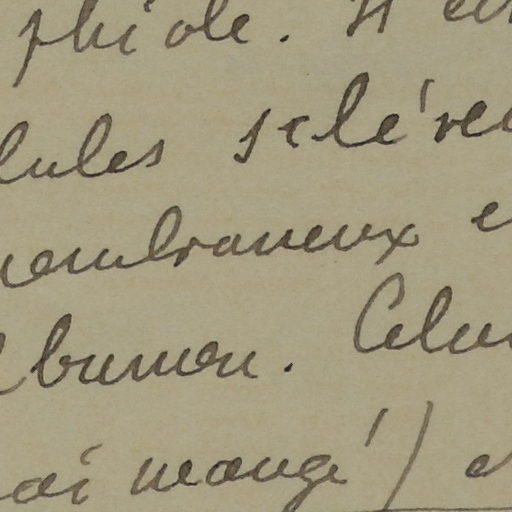 phiole. Il
lules sclére
membraneux e
lbumen. Celui
ai mangé) e